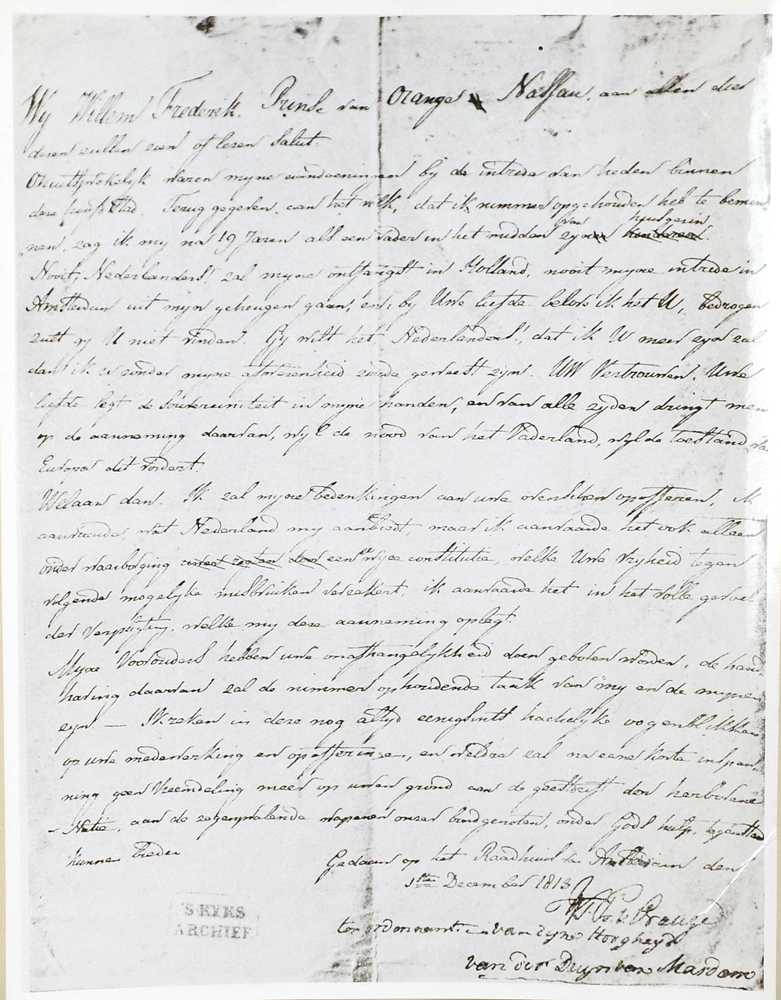 Wy Willem Frederik, Prinse van Orange Nassau, aan allen die
deren zullen zien of lezen Salut.
Onuitsprekelyk waren myne aandoeningen by de intrede van heden binnen
deze Stad. Terug gegeven aan het volk, dat ik nimmer opgehouden heb te bemin
nen, zag ik my na 19 Jaren als een Vader in het midden van zyn huisgezin
Nooit, Nederlanders! zal myne ontfangst in Holland, nooit myne intrede in
Amsterdam uit myn geheugen gaan, en, by Uwe liefde beloof ik het U, bedrogen
zult gy U niet vinden. Gy wilt het Nederlanders!, dat ik U meer zyn zal
dan ik zonder myne afwezenheid zoude geweest zyn. UW Vertrouwen, Uwe
liefde legt de Souvereiniteit in myne handen, en van alle zyden dringt men
op de aanneming daarvan, wyl de nood van het Vaderland, wyl de toestand van
Europa dit vordert.
Welaan dan. Ik zal myne bedenkingen aan uwe wenschen opofferen, ik
aanvaarde, wat Nederland my aanbiedt, maar ik aanvaarde het ook alleen
onder waarborging eener wyze constitutie, welke Uwe vryheid tegen
volgende mogelyke misbruiken verzekert, ik aanvaarde het in het volle gevoel
der Verpligting, welke my deze aanneming oplegt.
Myne Voorouders hebben uwe onafhangelykheid doen geboren worden, de hand
having daarvan zal de nimmer ophoudende taak van my en de mynen
zyn — Ik reken in deze nog altyd eenigsints hachelyke oogenblikken
op uwe medewerking en opoffering, en weldra zal na eene korte inspan
ning geen Vreemdeling meer op uwen grond aan de geestdrift der herboren
Natie, aan de zegepralende wapenen onzer bondgenoten, onder Gods hulp,
kunnen bieden
Gedaan op het Raadhuis te Amsterdam den
1ste December 1813
W. F. Pr. v. Oranje
ter ordonnantie van zyne Hoogheyd
van der Duyn van Maasdam
'S RYKS
ARCHIEF